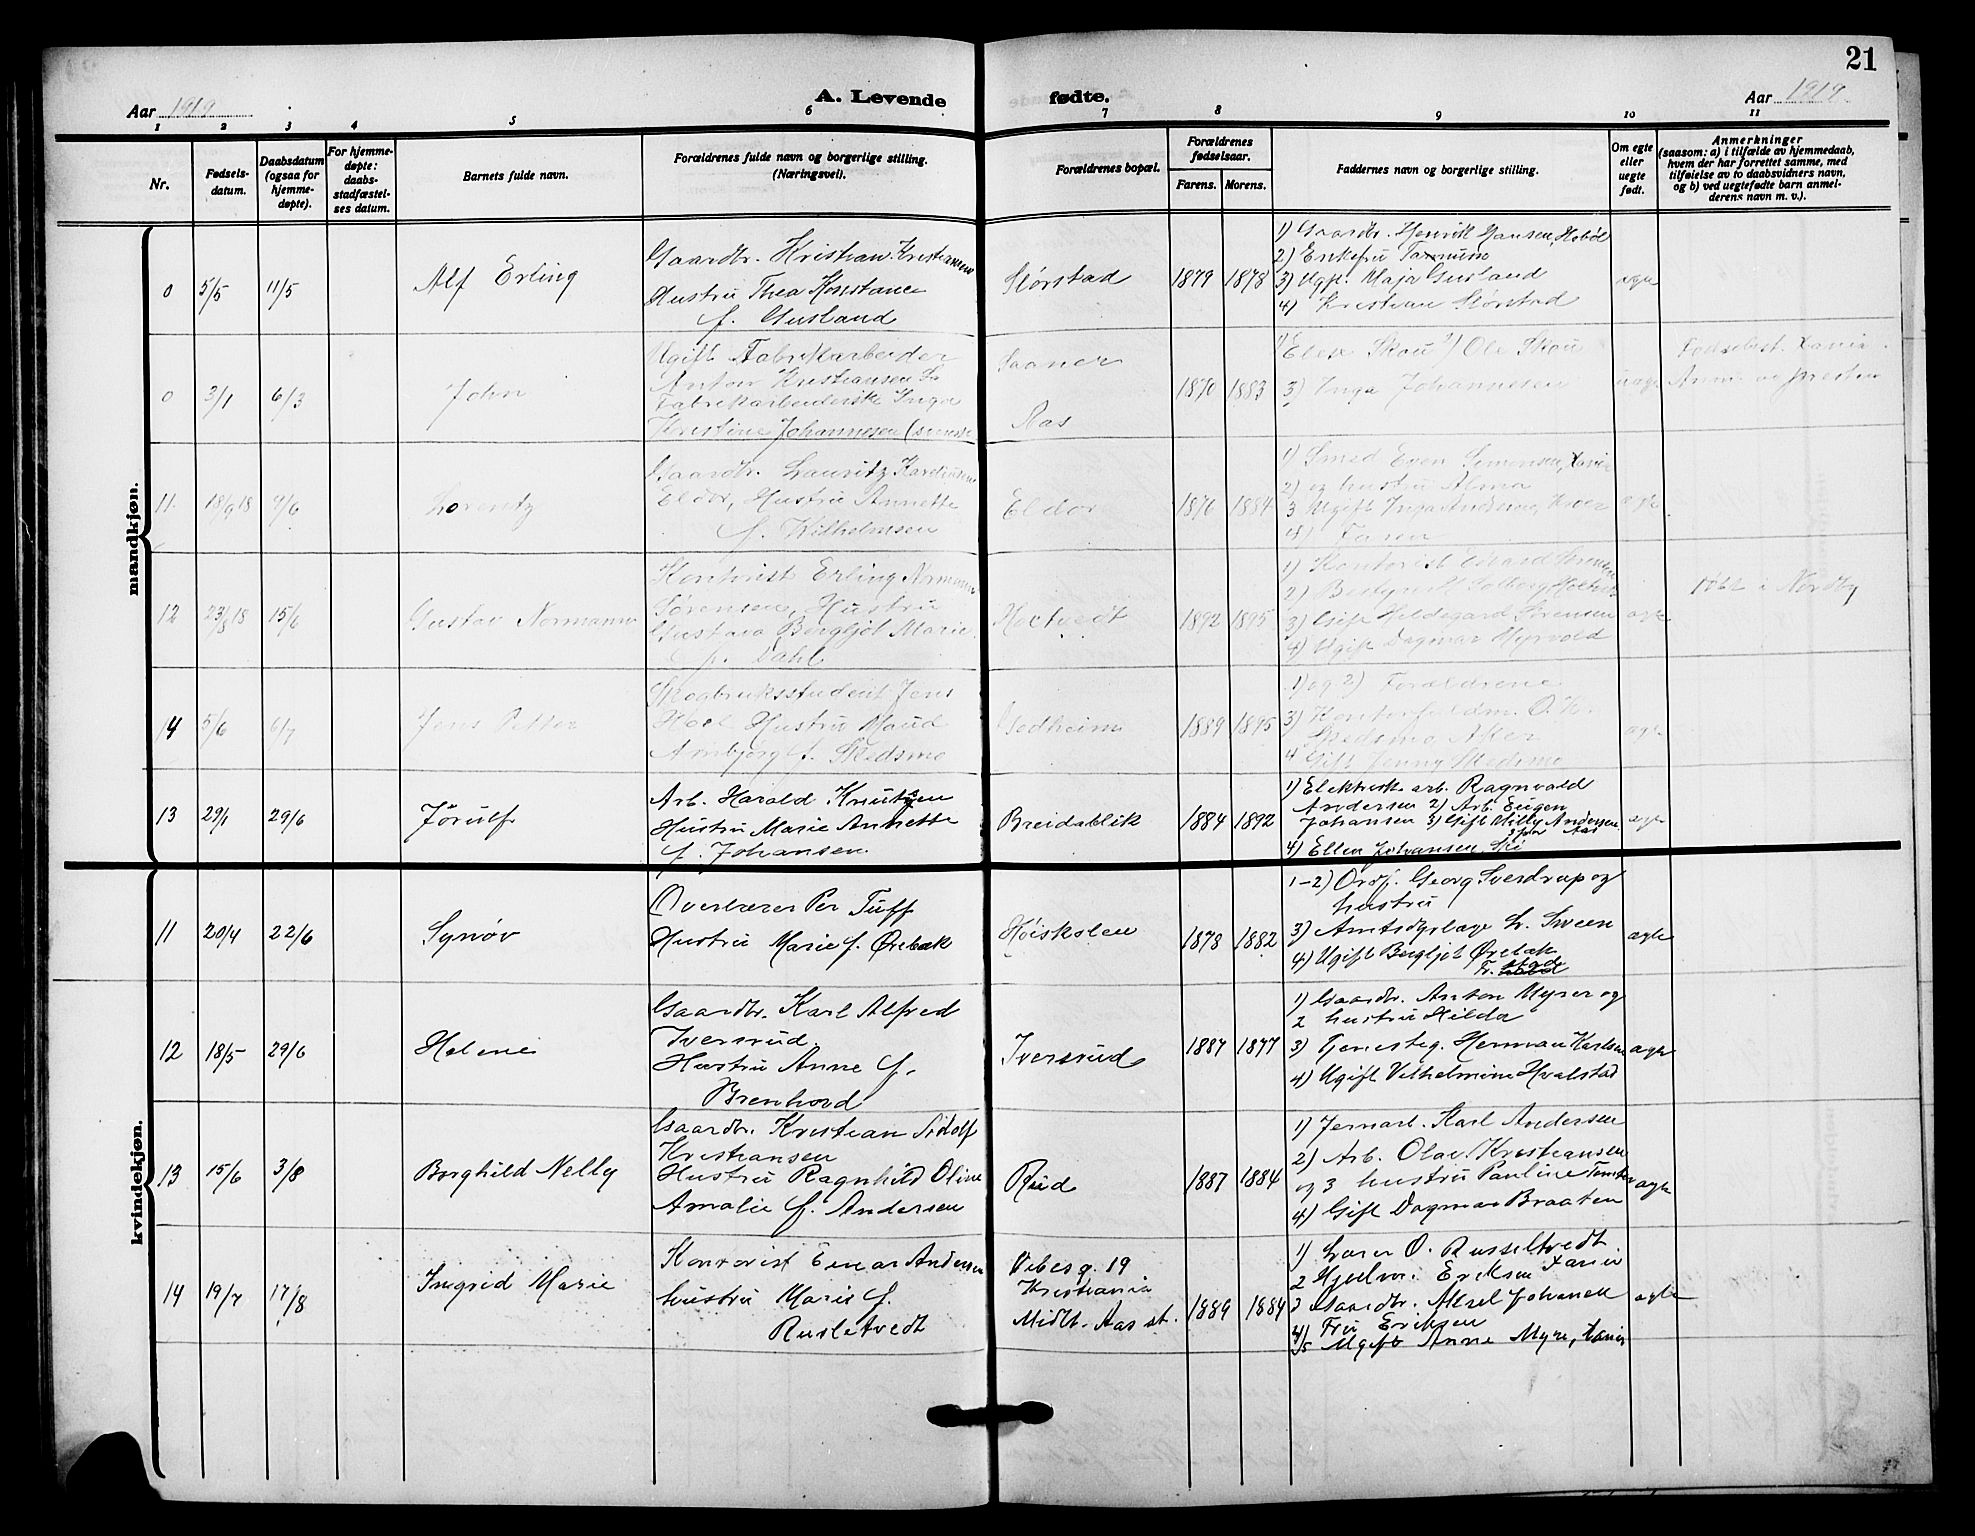 21
Aar 1919
A. Levende fødte.
Aar 1919
1 2 3 4 5 6 7 8 9 10 11
Nr.
Fødsels-
datum.
Daabsdatum
(ogsaa for
hjemme-
døpte).
For hjemme-
døpte:
daabs-
stadfæstel-
ses datum.
Barnets fulde navn.
Forældrenes fulde navn og borgerlige stilling.
(Næringsvei).
Forældrenes bopæl.
Forældrenes
fødselsaar.
Farens. Morens.
Faddernes navn og borgerlige stilling.
Om egte
eller
uegte
født.
Anmerkninger
(saasom: a) i tilfælde av hjemmedaab,
hvem der har forrettet samme, med
tilføielse av to daabsvidners navn,
og b) ved uegtefødte barn anmel-
derens navn m. v.).
mandkjøn.
0 5/5 11/5
Alf Erling
Gaardbr. Kristian Kristiansen
Hustru Thea Konstance
f. Gusland
Størstad
1879 1878
1) Gaardbr. Henrik Hansen, Hobøl
2) Enkefru
3) Ugift. Maja Gusland
4) Kristian Størstad
egte
0 3/1 6/3
John
Ugift Fabrikarbeider
Anton Kristiansen
Fabrikarbeiderske Inga
Kristine Johannesen
Saaner
Aas
1870 1883
1) Skou 2) Ole Skou
3) Inga Johannesen
uegte
11 18/9 18 9/6
Lorentz
Gaardbr. Lauritz
Eldor, Hustru Annette
f. Wilhelmsen
Eldor
1876 1884
1) Smed Even Simensen, Xania
2) og hustru Alma
3 Ugift Inga Andersen,
4) Faren
egte
12 23/8 18 15/6
Gustav Normann
Kontorist Erling Normann
Sørensen, Hustru
Gustava Bergljot Marie
f. Dahl
Holtvedt
1892 1895
1) Kontorist Sørensen
2)
3) Gift Hildegard Sørensen
4) Ugift Dagmar Myrvold
egte
i Nordby
14 5/6 6/7
Jens Petter
Skogbruksstudent Jens
Hoel Hustru Maud
Arnbjørg f. Skedsmo
Solheim
1889 1895
1) og 2) Forældrene
3) Kontorfuldm. O. K.
Skedsmo Aker
4 Gift Jenny Skedsmo
egte
13 29/1 29/6
Jørulf
Arb. Harald Knutzen
Hustru Marie Annette
f. Johansen
Breidablik
1884 1892
1) Elektrisk. arb. Ragnvald
Andersen 2) Arb. Eugen
Johansen 3) Gift Milly Andersen
Aas
4) Ellen Johansen Ski
egte
kvindekjøn.
11 20/4 22/6
Synøv
Overlærer Per Tuff
Hustru Marie f. Ørebæk
Høiskolen
1878 1882
1-2) Ordf. Georg Sverdrup og
hustru
3) L. Sveen
4) Ugift Bergljot Ørebæk
Fr. stad
egte
12 18/5 29/6
Helene
Gaardbr. Karl Alfred
Iversrud.
Hustru Anne f.
Brenhovd
Iversrud
1887 1877
1) Gaardbr. Anton Myrer og
2 hustru Hilda
3) Tjenesteg. Herman Karlsen
4) Ugift Vilhelmine Hvalstad
egte
13 15/6 3/8
Borghild Nelly
Gaardbr. Kristian Sidolf
Kristiansen
Hustru Ragnhild Oline
Amalie f. Andersen
Rud
1887 1884
1) Jernarb. Karl Andersen
2) Arb. Olav Kristiansen
og 3 hustru Pauline
4) Gift Dagmar Braaten
egte
14 19/7 17/8
Ingrid Marie
Kontorist Einar Andersen
hustru Marie f.
Rusletvedt
Vibesg. 19
Kristiania
Midlt. Aas st.
1889 1884
1) Lærer O. Russeltvedt
2 Eriksen Xania
3 Gaardbr. Aksel Johansen
4) Fru Eriksen
5 Ugift Anne Myre, Xania
egte